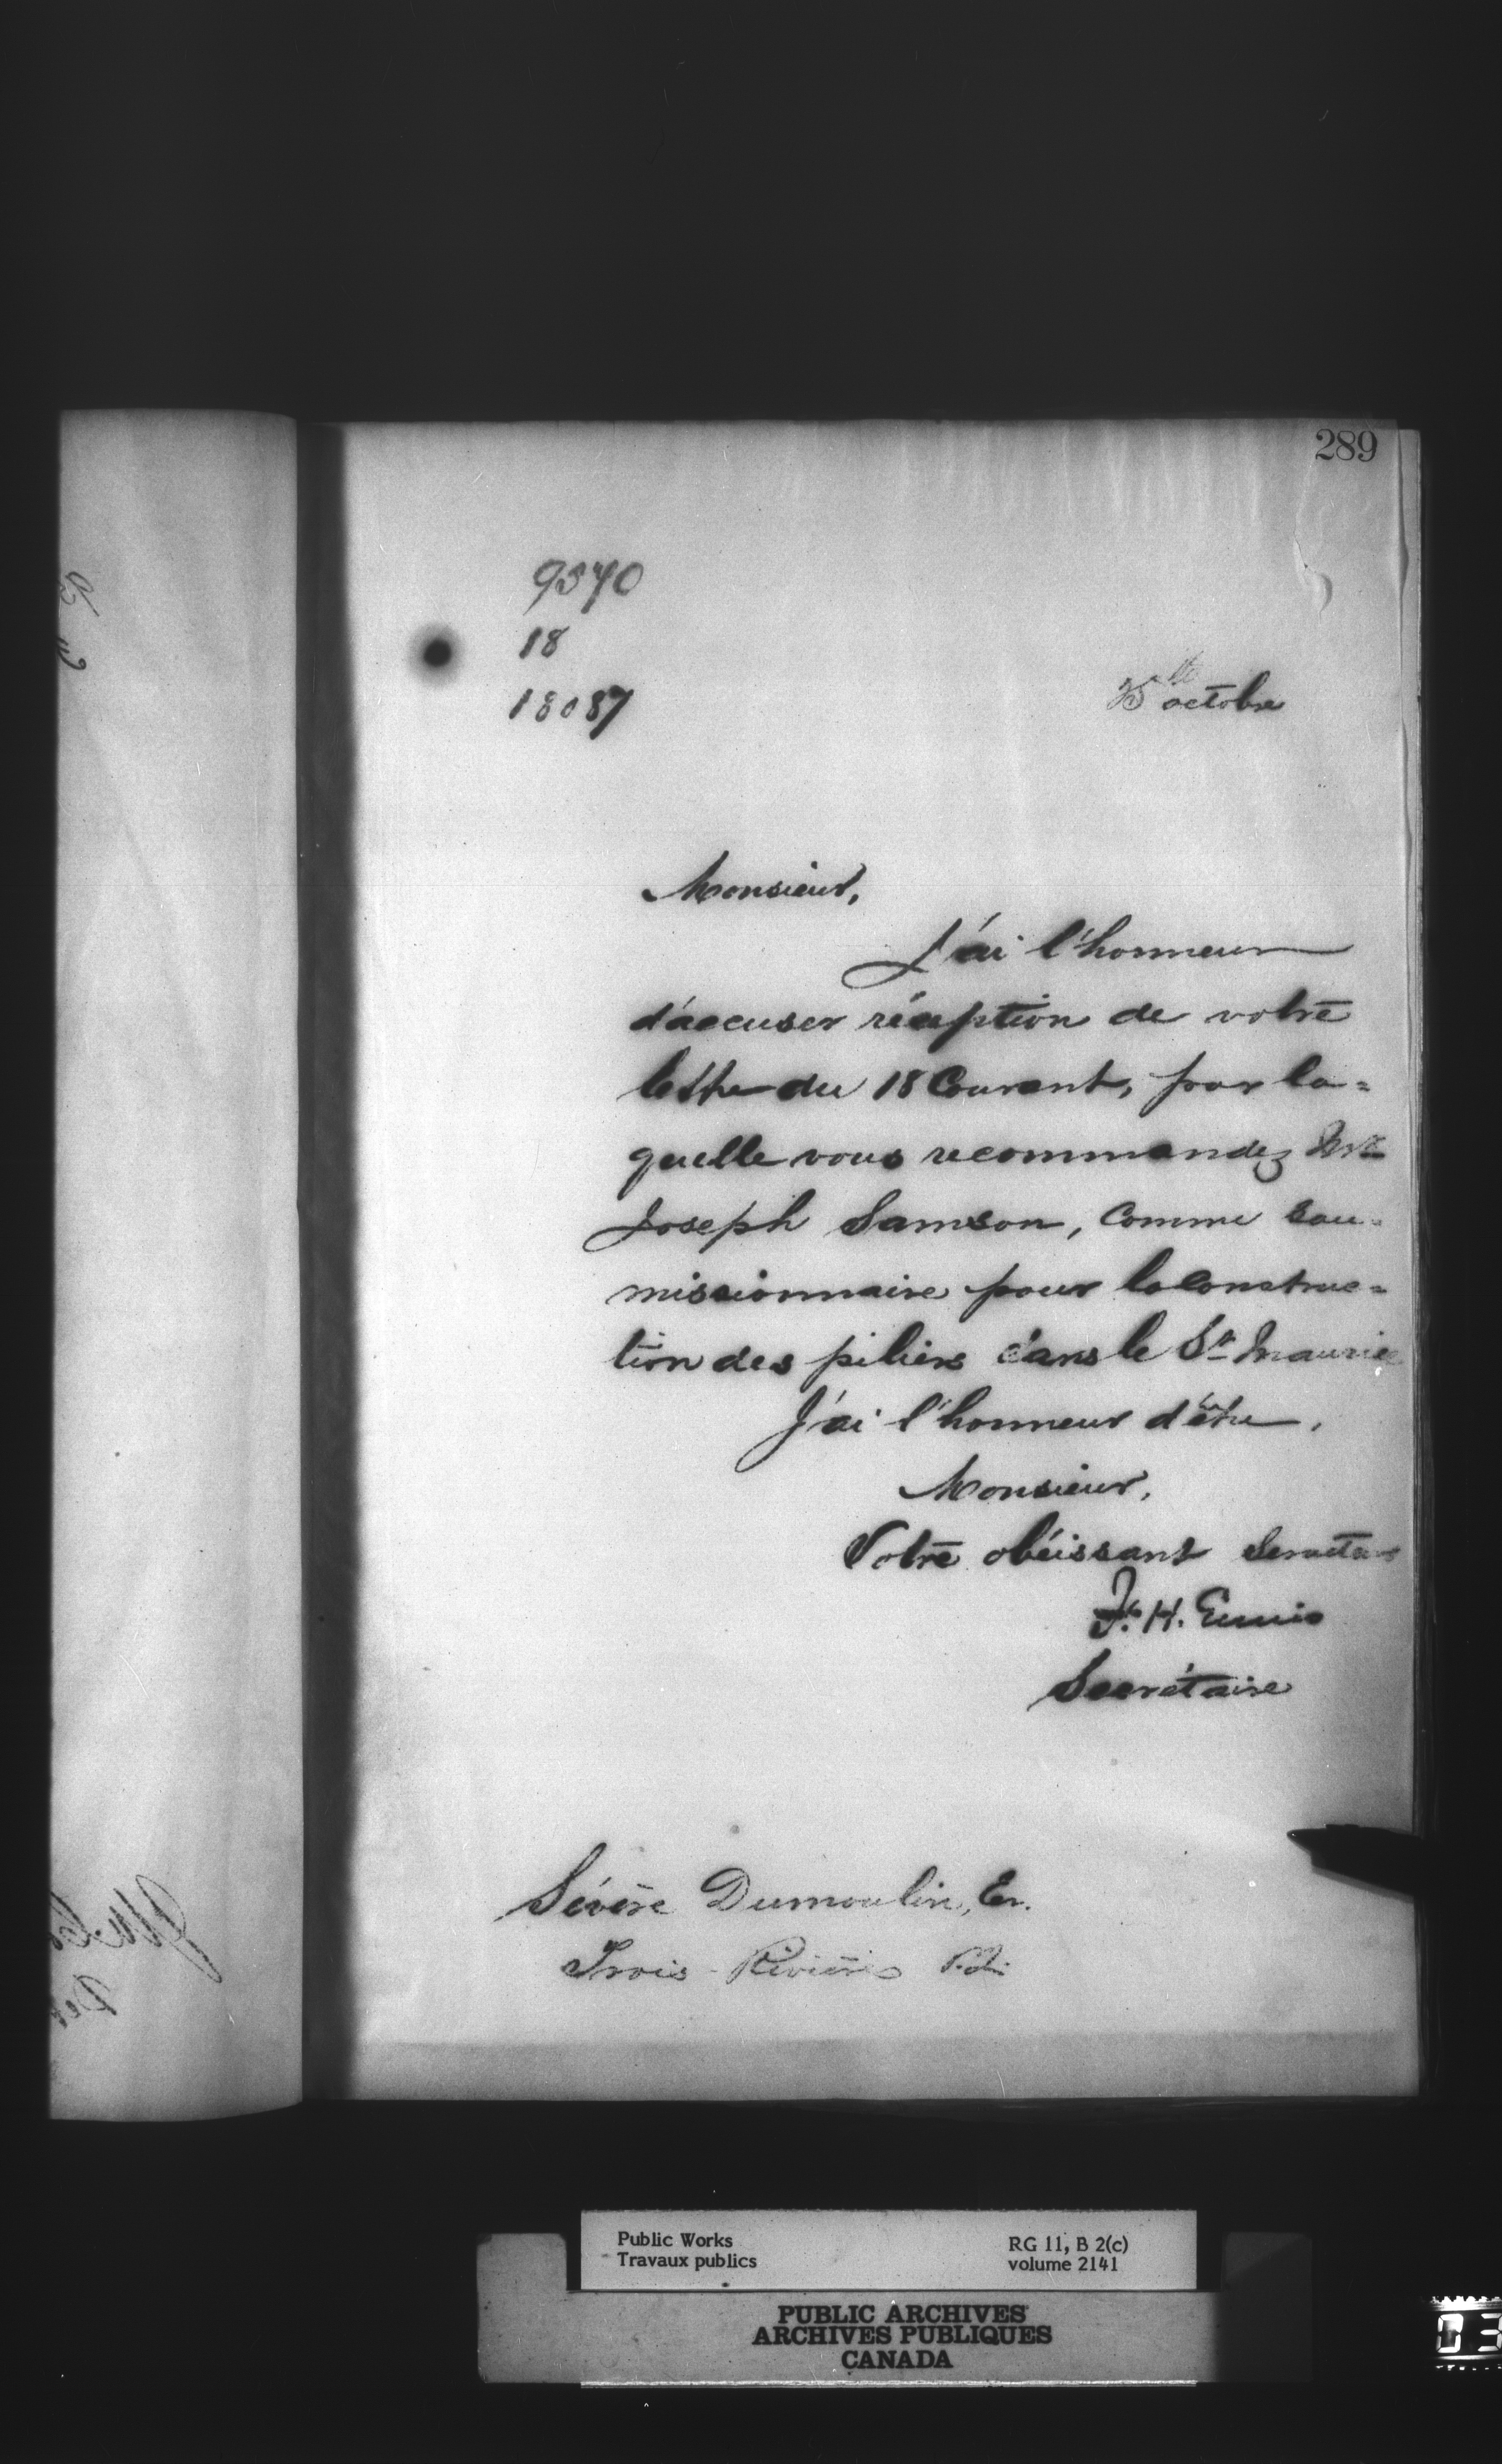 289
9540
18
18087
25 octobre
Monsieur,
J'ai l'honneur
d'accuser réception de votre
lettre du 18 Courant, par la=
quelle vous recommandez Mr
Joseph Samson, Comme sou=
missionnaire pour la Construc=
tion des piliers dans le St Maurice
J'ai l'honneur d'être,
Monsieur,
Votre obéissant Serviteur
F. H. Ennis
Secrétaire
Sévère Dumoulin, Er.
Trois-Rivières P.Q.
Public Works
Travaux publics
RG 11, B 2(c)
volume 2141
PUBLIC ARCHIVES
ARCHIVES PUBLIQUES
CANADA
03